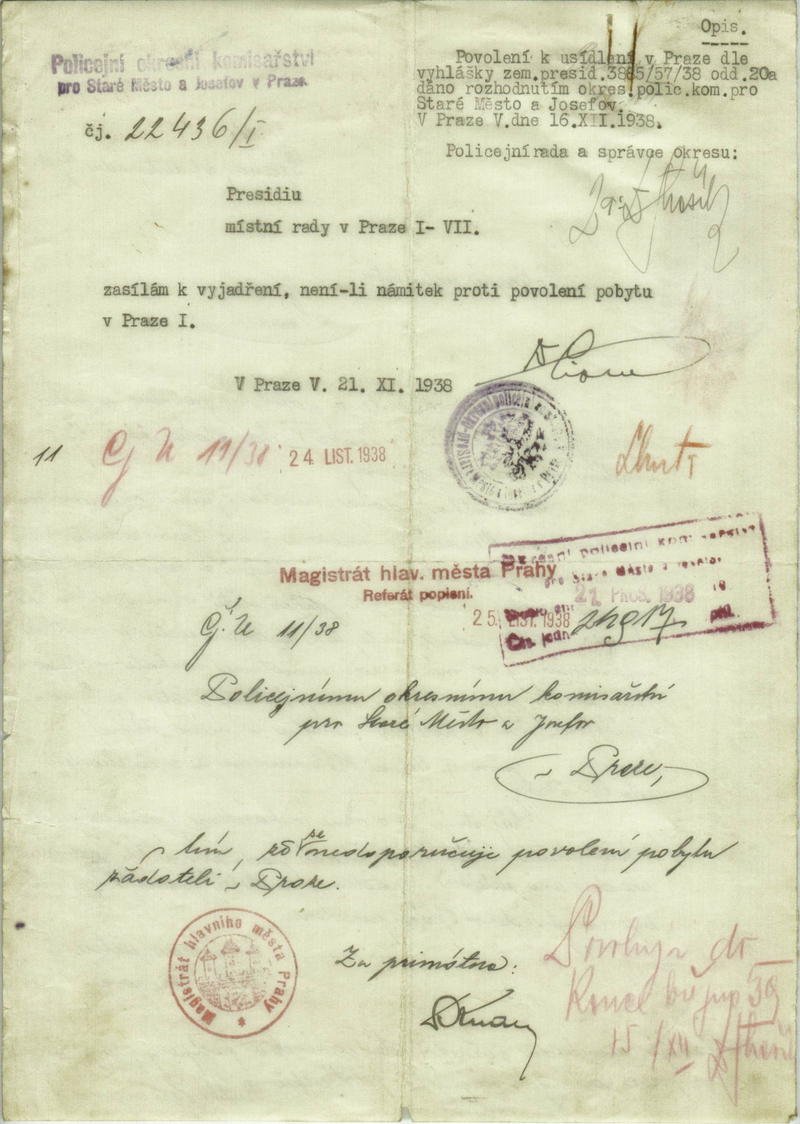 Opis.
Policejní okresní komisařství
pro Staré Město a Josefov v Praze
čj. 22436/I
Povolení k usídlení v Praze dle
vyhlášky zem.presid.3885/57/38 odd.20a
dáno rozhodnutím okres.polic.kom.pro
Staré Město a Josefov.
V Praze V.dne 16.XII.1938.
Policejní rada a správce okresu:
Presidiu
místní rady v Praze I- VII.
zasílám k vyjadření, není-li námitek proti povolení pobytu
v Praze I.
V Praze V. 21. XI. 1938
11
Čj U 11/38
24 LIST. 1938
Magistrát hlav. města Prahy
Referát popisní.
25. LIST. 1938
okresní policejní komisařství
pro Staré Město a Josefov
21 PROS. 1938
Čís. jedn.
Čj. U 11/38
Policejnímu okresnímu komisařství
pro Staré Město a Josefov
v Praze,
s tím, že se nedoporučuje povolení pobytu
žadateli v Praze.
Magistrát hlavního města Prahy
Za primátora:
Povoluje do
15/XII